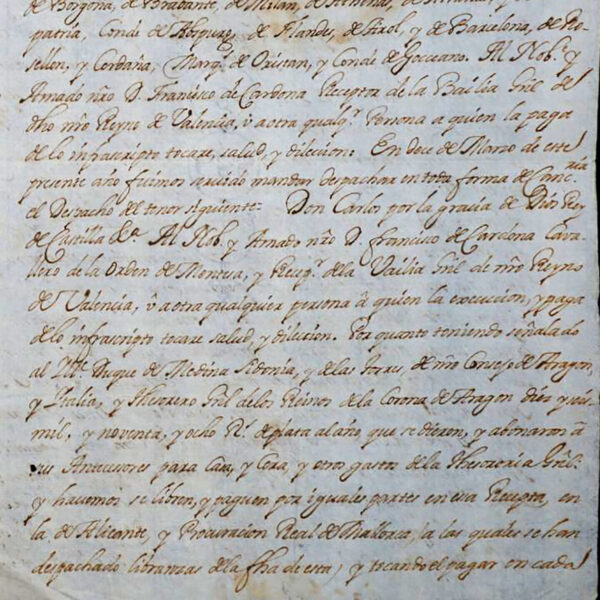 de Borgoña, de Brabante, de Milan, de Athenas,
patria, Conde de Abspurg, de Flandes, de Tirol, y de Barcelona, de Ro
sellon, y Cerdaña, Marq.s de Oristan, y Conde de Goceano. Al Nob.e y
Amado nrõ D. Francisco de Cardona Receptor de la Bailia Gñl de
dho nrõ Reyno de Valencia, ò a otra qualq.r Persona a quien la paga
de lo infrascripto tocare, salud, y dilecion: En doce de Marzo de este
presente año fuimos servido mandar despachar en toda forma de Canc.ria
el Despacho del tenor siguiente: Don Carlos por la gracia de Dios Rey
de Castilla &.a Al Nob. y Amado nrõ D. Francisco de Cardona Cava
llero de la Orden de Montesa, y Recep.r de la Vailia Gñl de nrõ Reyno
de Valencia, ò a otra qualquier persona â quien la execucion, y paga
de lo infrascripto tocare salud, y dilecion. Por quanto teniendo señalado
al Ill.e Duque de Medina Sidonia, y de las Torres, de nrõ Consejo de Aragon,
y Italia, y Thesorero Gñl de los Reinos de la Corona de Aragon diez y seis
mil, y noventa, y ocho R.s de plata al año, que se dieron, y abonaron â
sus Antecesores para Casa, y Cera, y otros gastos de la Thesoreria Gñl:
y havemos se libren, y paguen por iguales partes en esa Recepta, en
la de Alicante, y Procuracion Real de Mallorca, a las quales se han
despachado libranzas de la fha de esta, y tocando el pagar en cada